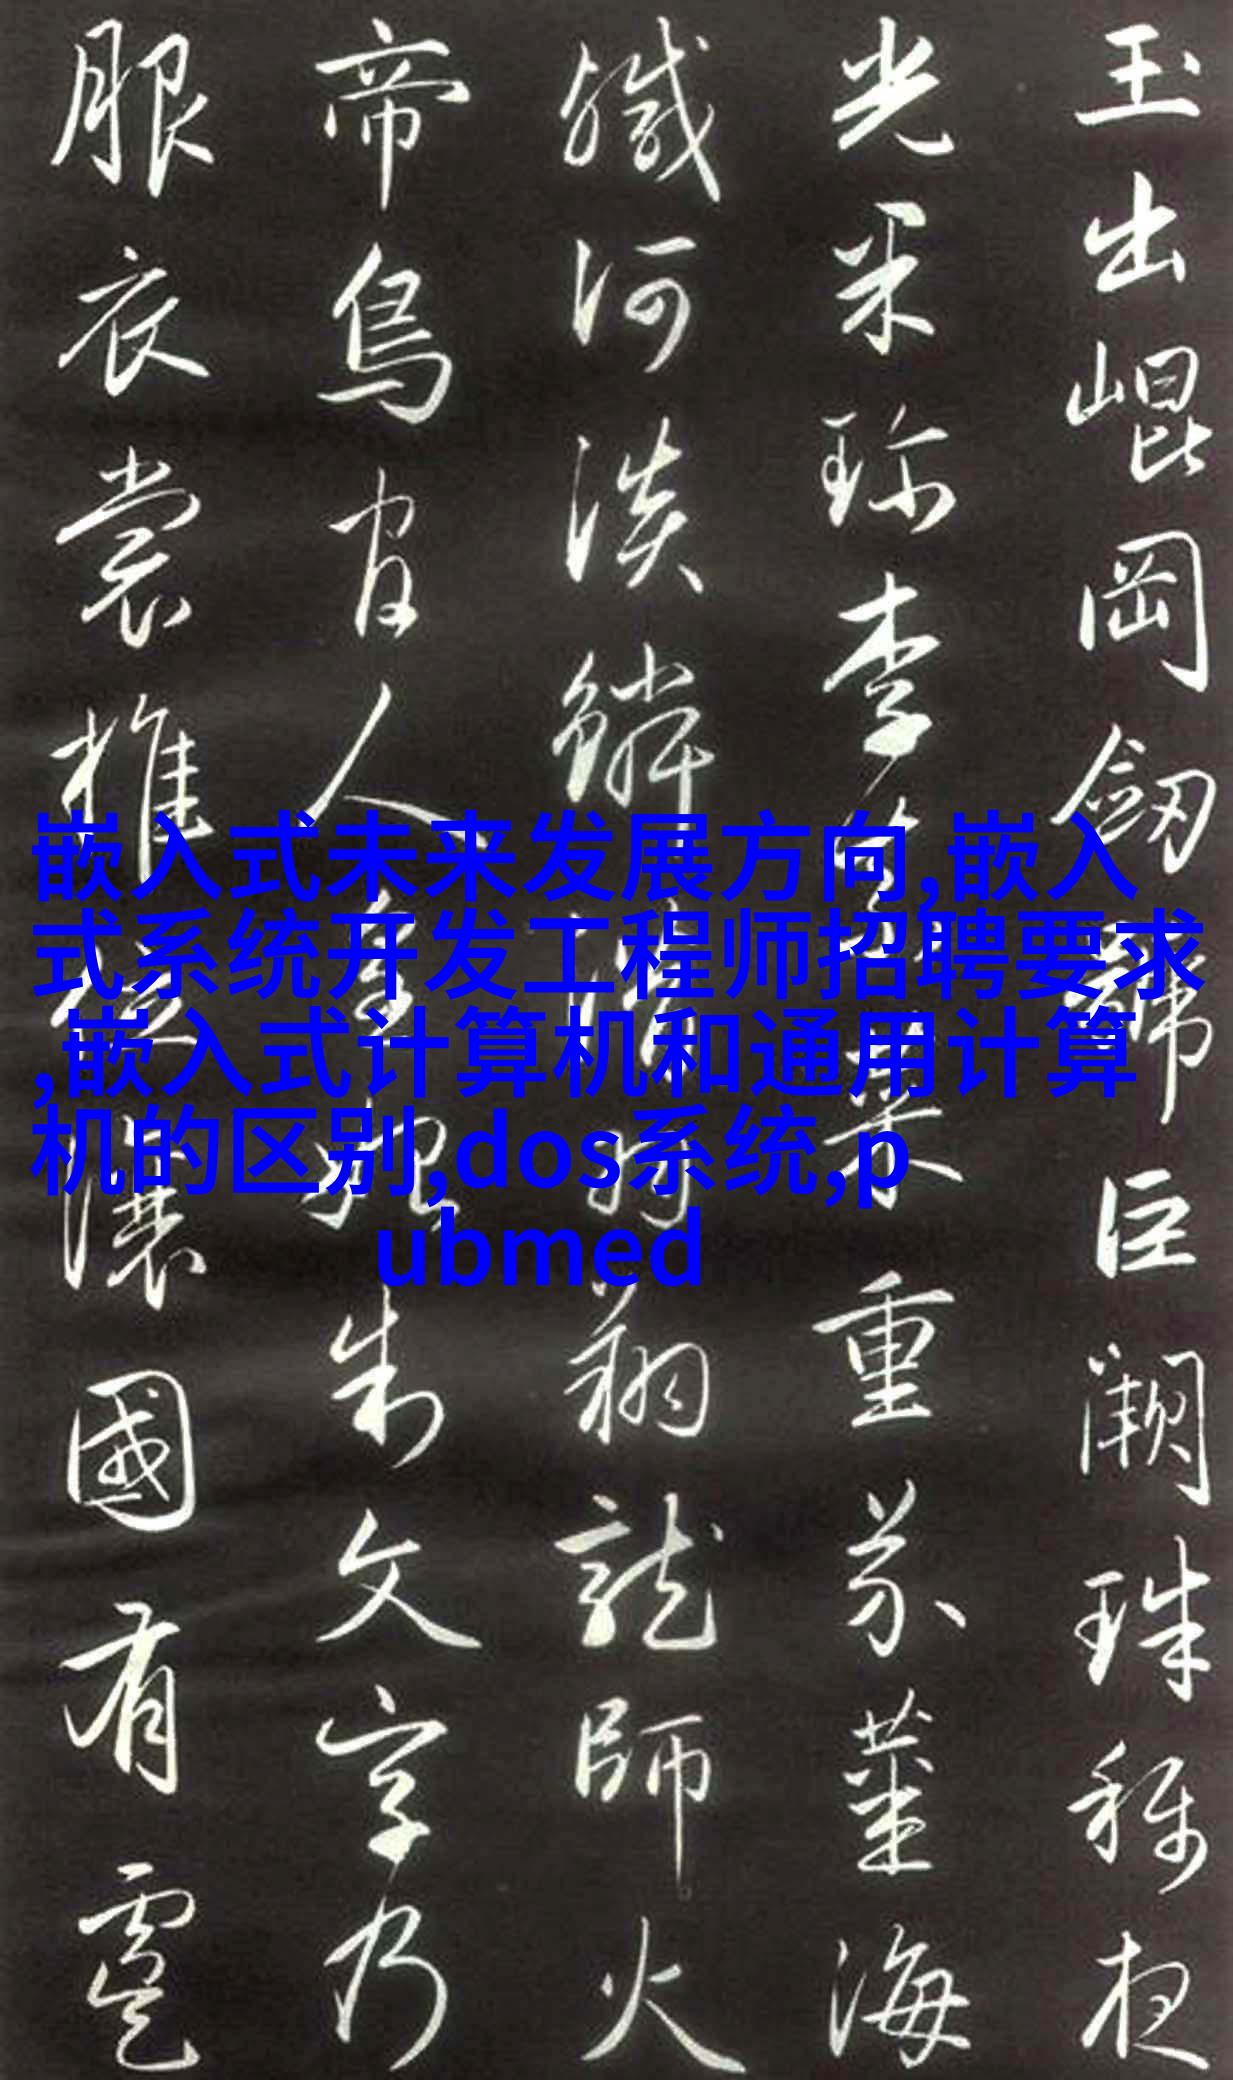 玉出崐岡劔號巨闕珠称夜
光果珎李柰菜重芥薑海
鹹河淡鱗潛羽翔龍師火
帝鳥官人皇始制文字乃
服衣裳推位讓國有虞
嵌入式未来发展方向,嵌入
式系统开发工程师招聘要求
,嵌入式计算机和通用计算
机的区别,dos系统,p
ubmed